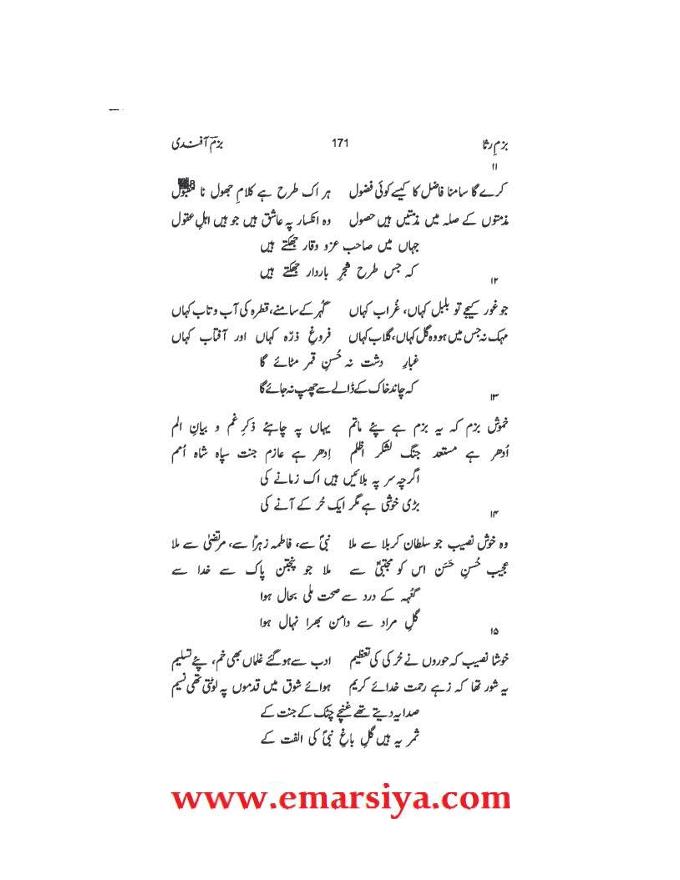 بزمِ رثا 171 بزمؔ آفندی
۱۱
کرے گا سامنا فاضل کا کیسے کوئی فضول ہر اک طرح ہے کلامِ جھول نا مقبول
مذمتوں کے صلہ میں مذمتیں ہیں حصول وہ انکسار پہ عاشق ہیں جو ہیں اہلِ عقول
جہاں میں صاحب عزو وقار جھکتے ہیں
کہ جس طرح شجرِ باردار جھکتے ہیں
۱۲
جو غور کیجے تو بلبل کہاں، غُراب کہاں گہر کے سامنے، قطرہ کی آب و تاب کہاں
مہک نہ جس میں ہو وہ گل کہاں، گلاب کہاں فروغِ ذرّہ کہاں اور آفتاب کہاں
غبارِ دشت نہ حُسنِ قمر مٹائے گا
کہ چاند خاک کے ڈالے سے چھپ نہ جائے گا
۱۳
خموش بزم کہ یہ بزم ہے پئے ماتم یہاں پہ چاہئے ذکرِ غم و بیانِ الم
اُدھر ہے مستعد جنگ لشکر اظلم اِدھر ہے عازم جنت سپاہ شاہ اُمم
اگرچہ سر پہ بلائیں ہیں اک زمانے کی
بڑی خوشی ہے مگر ایک حُر کے آنے کی
۱۴
وہ خوش نصیب جو سلطان کربلا سے ملا نبیؐ سے، فاطمہ زہراؑ سے، مرتضیٰؑ سے ملا
عجیب حُسنِ حَسَن اس کو مجتبیٰؑ سے ملا جو پنجتن پاک سے خدا سے
گنہہ کے درد سے صحت ملی بحال ہوا
گلِ مراد سے دامن بھرا نہال ہوا
۱۵
خوشا نصیب کہ حوروں نے حُر کی کی تعظیم ادب سے ہوگئے غلماں بھی خم، پئے تسلیم
یہ شور تھا کہ زہے رحمت خدائے کریم ہوائے شوق میں قدموں پہ لوٹتی تھی نسیم
صدا یہ دیتے تھے غنچے چٹک کے جنت کے
ثمر یہ ہیں گلِ باغِ نبیؐ کی الفت کے
www.emarsiya.com